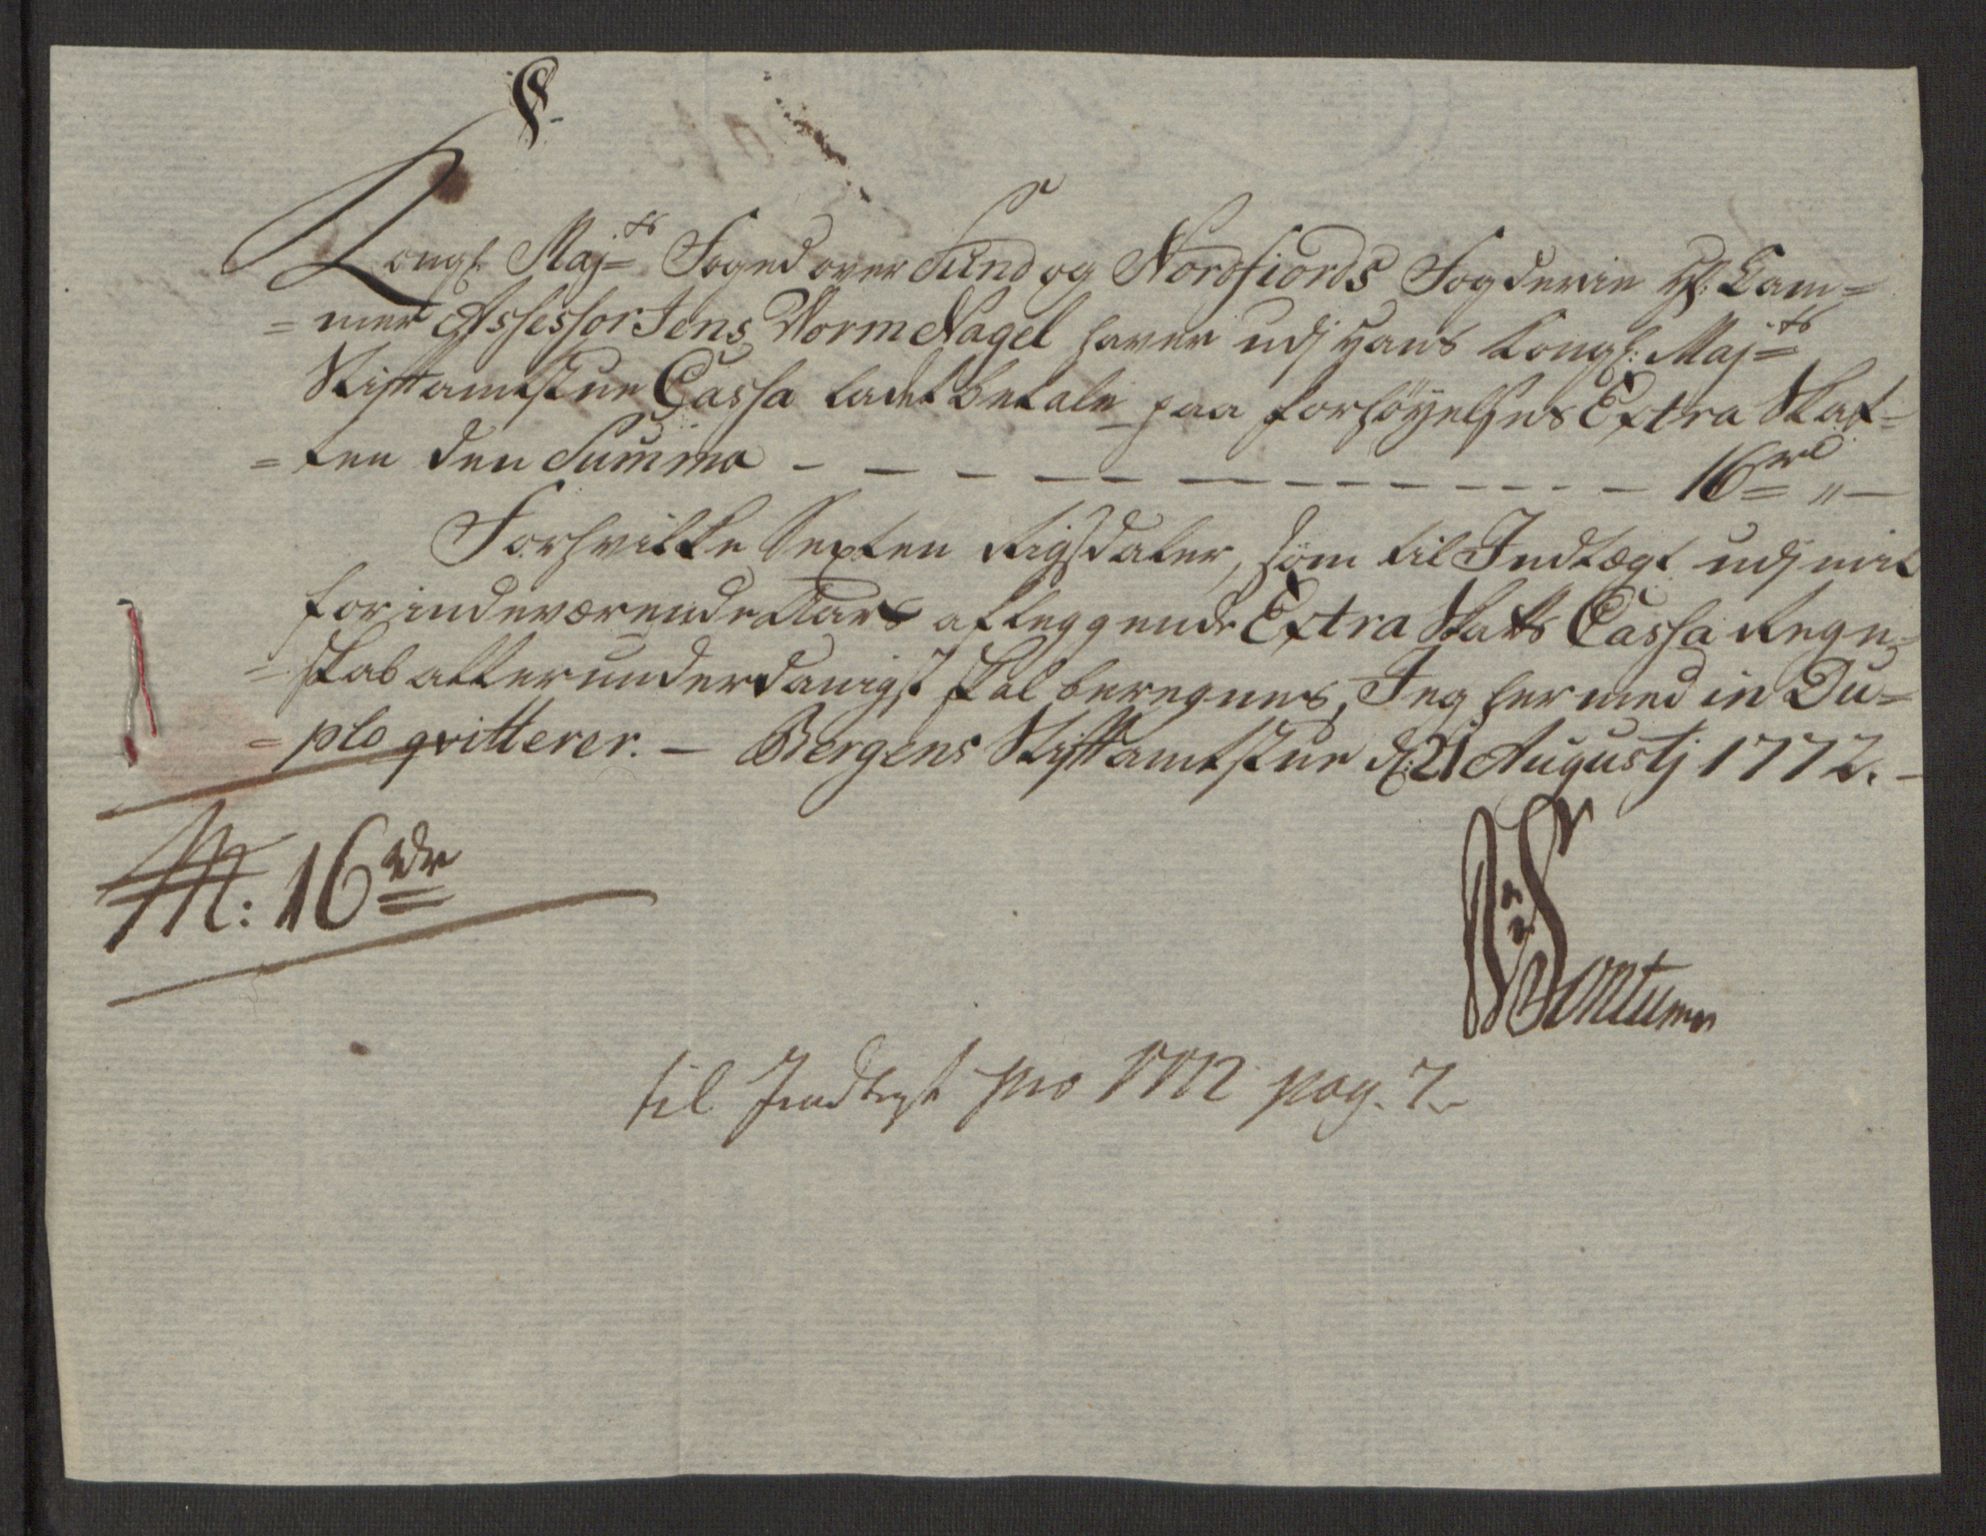 Kongl: Maj^ts Foged over Sund og Nordfiords Fogderie Hr: Cam=
=mer Assessor Jens Worm Nagel haver udj Hans Kongl: Maj^ts
Stiftamtstue Cassa ladet betale paa forhøyelses Extra Skat=
=ten den Summa — — — — — — — — — — 16 rd „ —
Forhvilke Sexten Rigsdaler, som til Indtægt udj mit
for indeværende Aars aflæggende Extra Skatts Cassa Regn=
=skab allerunderdanigst skal beregnes, Jeg her med in Du=
=plo qvitterer. — Bergens Stiftamtstue d: 21 Augustj 1772. —
M: 16 rdr
Sontum
til Indtegt pro 1772 pag. 7